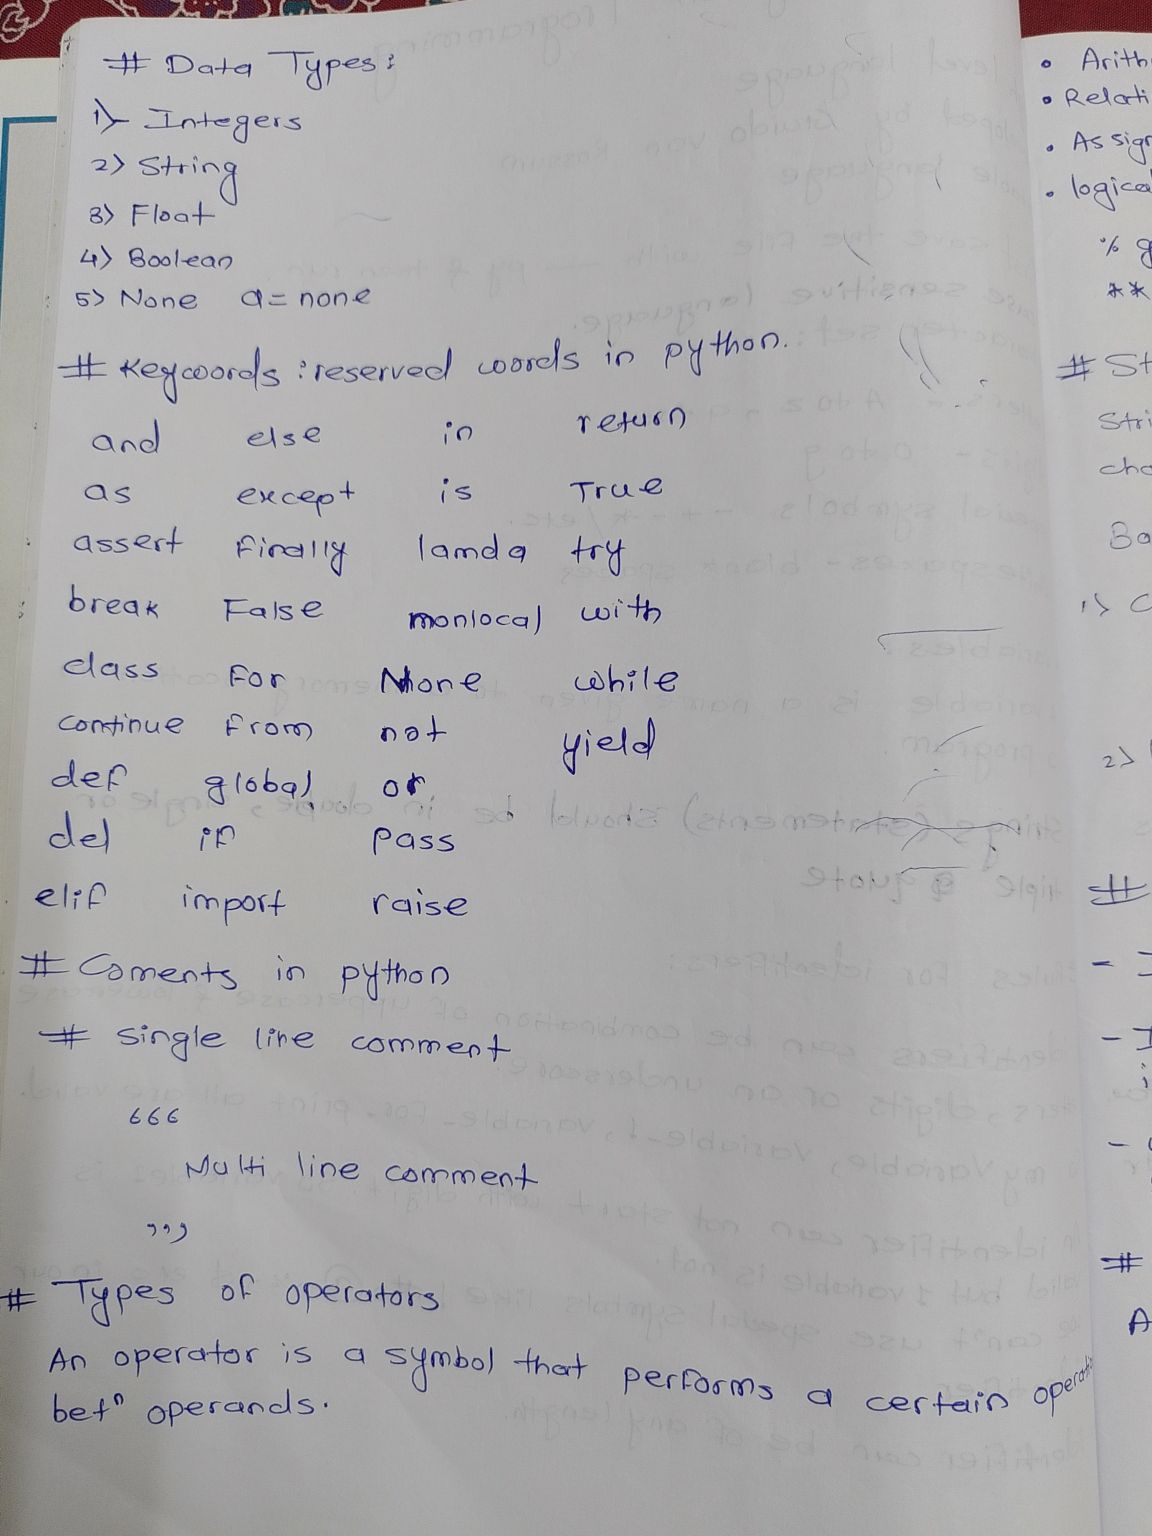 # Data Types:
1) Integers
2) String
3) Float
4) Boolean
5) None a = none
# Keywords : reserved words in python.
and else in return
as except is True
assert Finally lamda try
break False monlocal with
class For None while
continue From not yield
def global or
del if pass
elif import raise
# Coments in python
# single line comment
666
Multi line comment
,,,
# Types of operators
An operator is a symbol that performs a certain operati
betn operands.
• Arith
• Relati
• Assign
• logical
%
**
# St
Stri
cha
Ba
1) C
2)
#
- I
- I
-
#
A